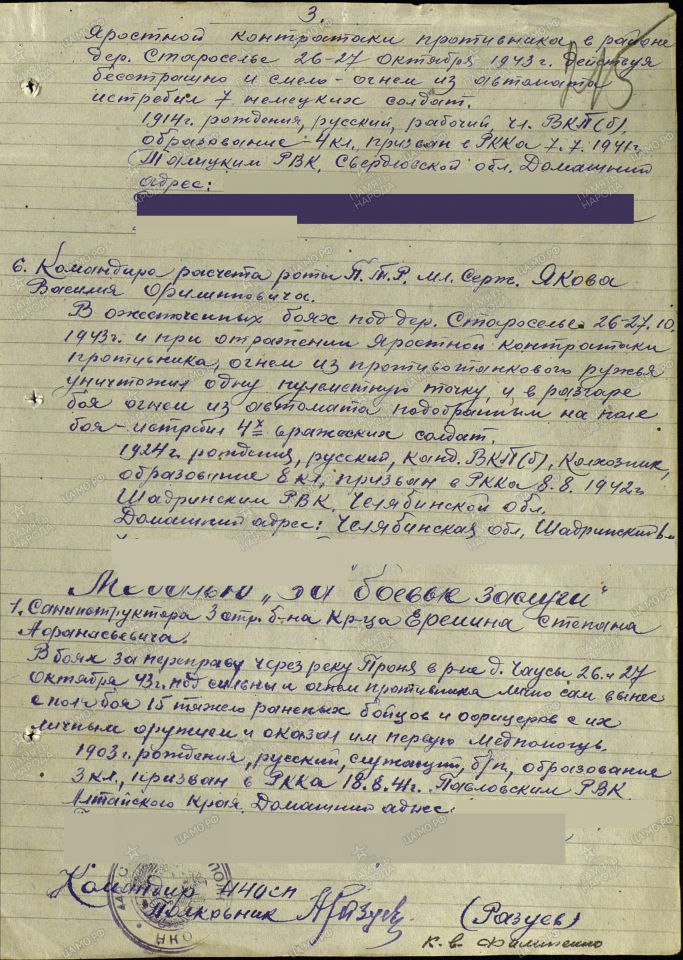 3.
Яростной контратаки противника в районе
дер. Староселье 26-27 октября 1943 г. действуя
бесстрашно и смело - огнем из автомата
истребил 7 немецких солдат.
1914 г. рождения, русский, рабочий, чл. ВКП(б),
образование - 4 кл., призван в РККА 7.7.1941 г.
Талицким РВК, Свердловской обл. Домашний
адрес:
6. Командира расчета роты П.Т.Р. мл. серж. Якова
Василия Филипповича.
В ожесточенных боях под дер. Староселье 26-27.10.
1943 г. и при отражении яростной контратаки
противника, огнем из противотанкового ружья
уничтожил одну пулеметную точку, и в разгаре
боя огнем из автомата подобранным на поле
боя - истребил 4х вражеских солдат.
1924 г. рождения, русский, канд. ВКП(б), колхозник,
образование 8 кл. призван в РККА 8.8.1942 г.
Шадринским РВК, Челябинской обл.
Домашний адрес: Челябинская обл, Шадринский р-н
Медалью „За боевые заслуги"
1. Санинструктора 3 стр. б-на Кр-ца Еремина Степана
Афанасьевича.
В боях за переправу через реку Проня в р-не д. Чаусы 26 и 27
октября 43 г. под сильным огнем противника лично сам вынес
с поля боя 15 тяжело раненых бойцов и офицеров с их
личным оружием и оказал им первую медпомощь.
1903 г. рождения, русский, служащий, б/п, образование
3 кл., призван в РККА 18.8.41 г. Павловским РВК
Алтайского Края. Домашний адрес:
Командир 449 СП
Полковник (Разуев)